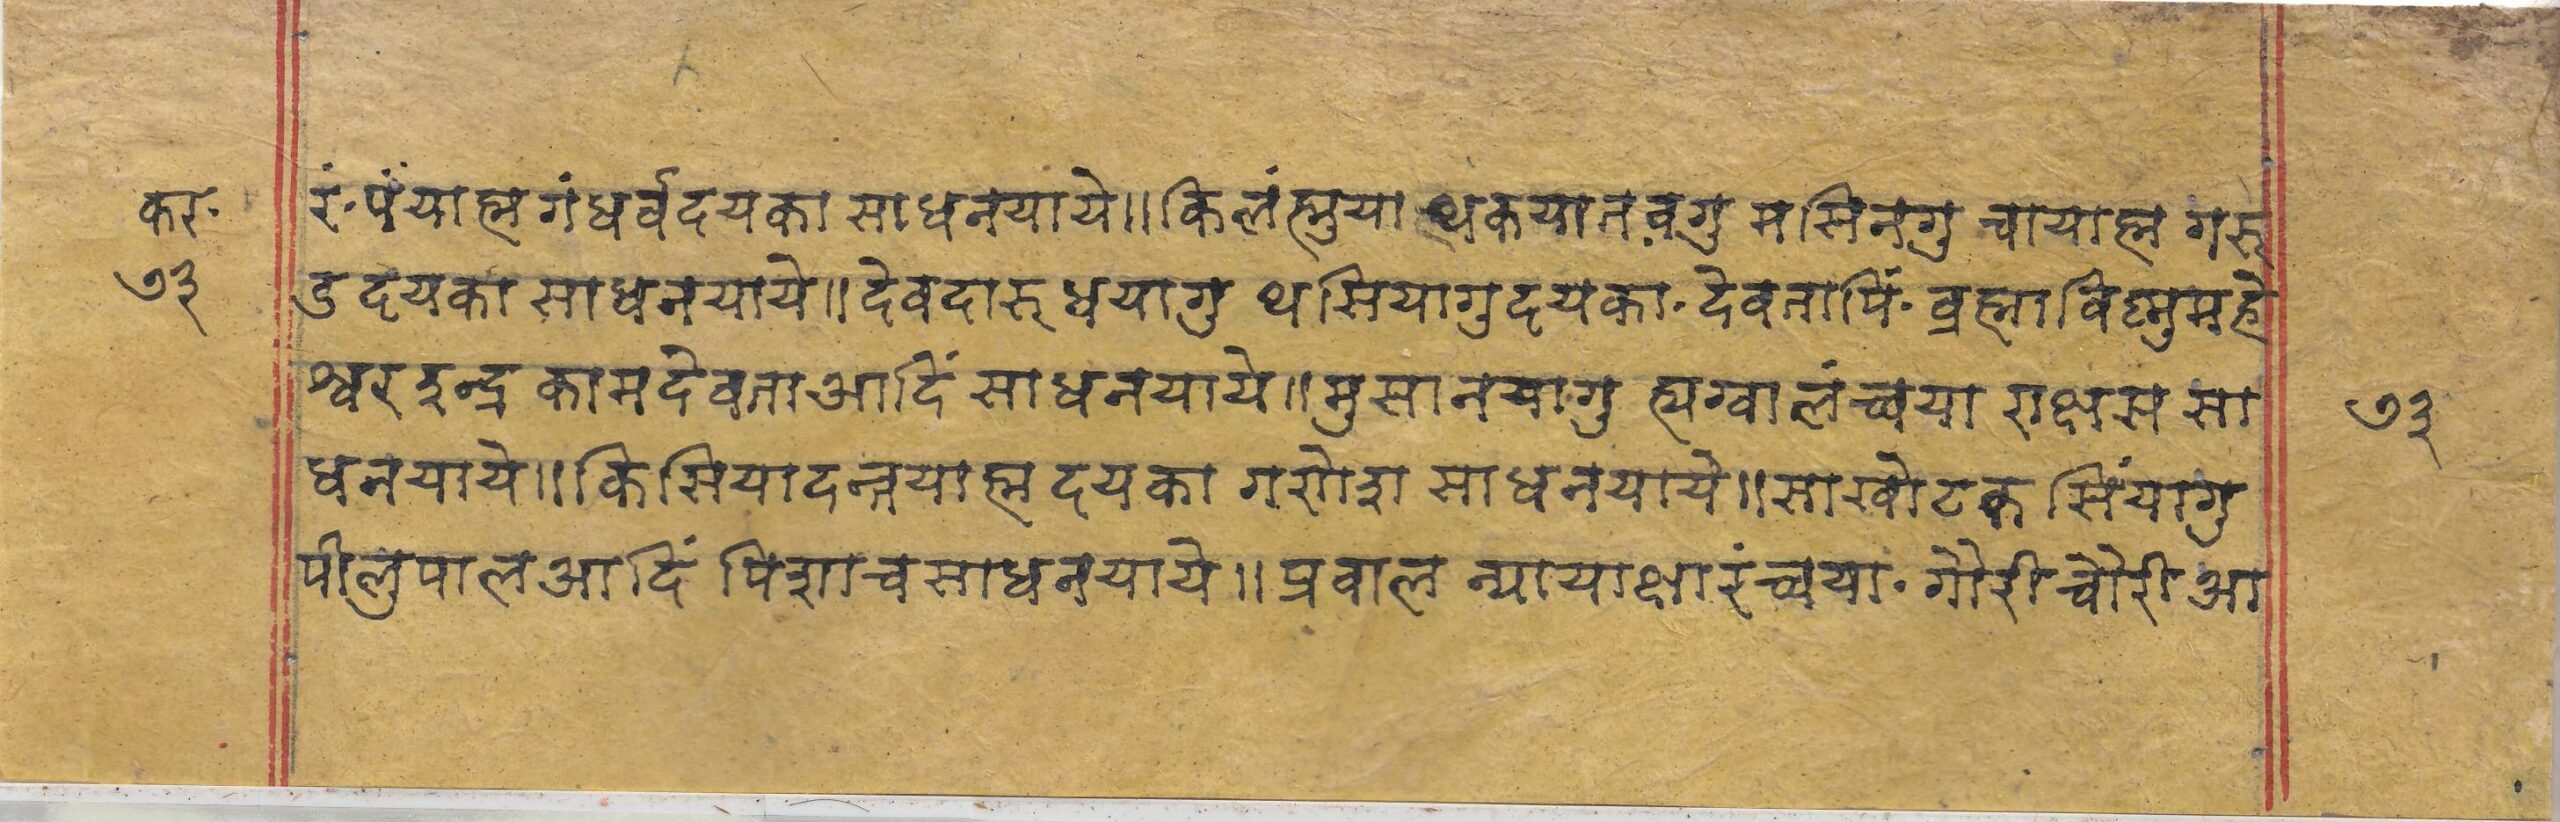 कार॰
७३
रं॰पंयाह्म गंधर्वदयका साधनयाये॥ किलंह्मुया थकयातवगु मसिनगु चायाह्म गरू
ड दयका साधनयाये॥ देवदारू धयागु थसियागु दयका॰ देवतापिं॰ ब्रह्मा विष्नुमहे
श्वर इन्द्र कामदेवता आदिं साधनयाये॥ मुसानयागु ह्यग्वालं च्वया राक्षस सा
धनयाये॥ किसियादन्तयाह्म दयका गणेश साधनयाये॥ साखोटक सिंयागु
पीलुपाल आदिं पिशाच साधनयाये॥ प्रवाल न्यायाक्षारं च्वया॰ गौरी चौरी आ
७३